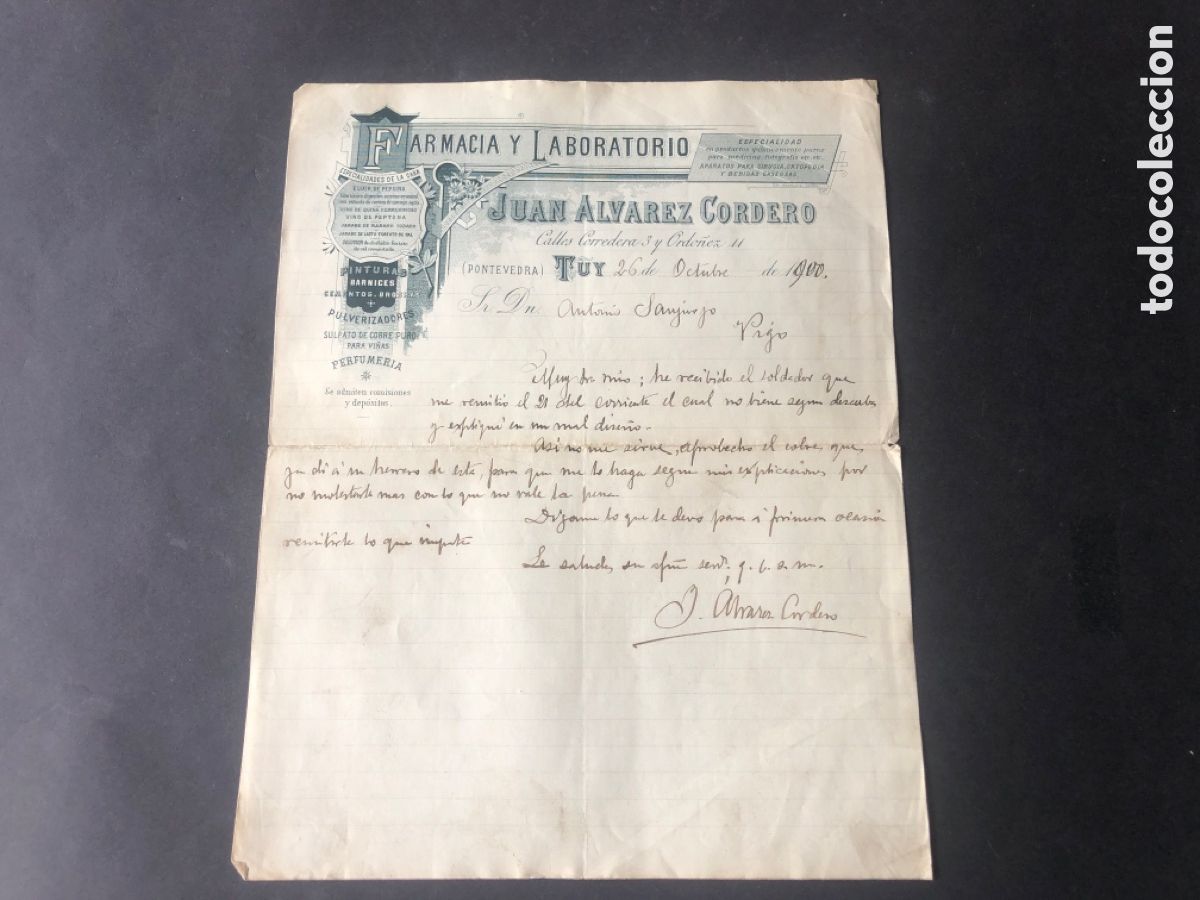 FARMACIA Y LABORATORIO
ESPECIALIDAD
en productos químicamente puros
para medicina, fotografía etc. etc.
APARATOS PARA CIRUGIA, ORTOPEDIA
Y BEBIDAS GASEOSAS
ESPECIALIDADES DE LA CASA
ELIXIR DE PEPSINA
VINO DE QUINA FERRUGINOSO
VINO DE PEPTONA
JARABE DE RABANO YODADO
JARABE DE LACTO FOSFATO DE CAL
PINTURAS
BARNICES
CEMENTOS. BROCHAS
PULVERIZADORES
SULFATO DE COBRE PURO
PARA VIÑAS
PERFUMERIA
Se admiten comisiones
y depósitos.
JUAN ALVAREZ CORDERO
Calles Corredera 3 y Ordoñez 11
(PONTEVEDRA) TUY 26 de Octubre de 1900.
Sr. Dn. Antonio Sanjurjo
Vigo
Muy Sr. mio; he recibido el soldador que
me remitio el 21 del corriente el cual no biene segun deseaba
y expliqué en un mal diseño.
Asi no me sirve, aprobecho el cobre que
ya di á un herrero de esta, para que me lo haga segun mis explicaciones por
no molestarle mas con lo que no vale la pena
Digame lo que le devo para á primera ocasión
remitirle lo que importe
Le saluda su servr. q. b. s. m.
J. Álvarez Cordero
todocoleccion